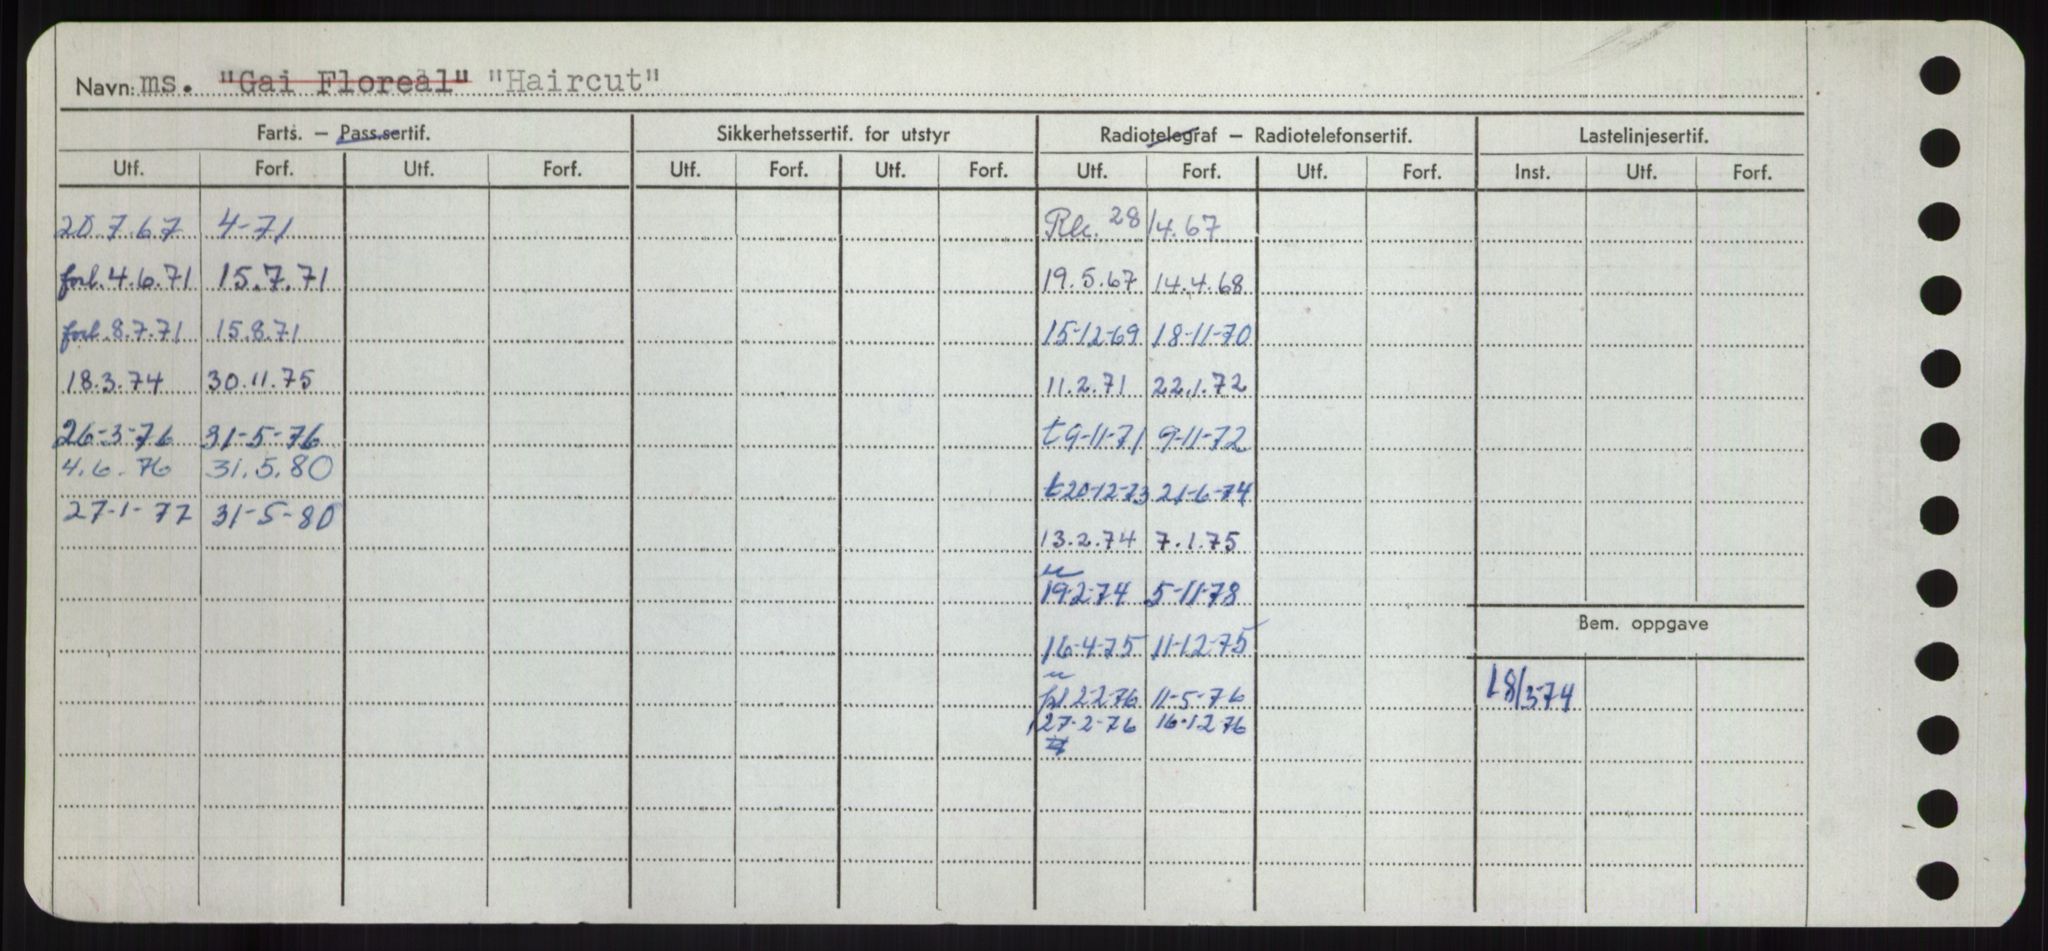 Navn: ms. "Gai Floreal" "Haircut"
Farts. – Pass.sertif. Sikkerhetssertif. for utstyr Radiotelegraf – Radiotelefonsertif. Lastelinjesertif.
Utf. Forf. Utf. Forf. Utf. Forf. Utf. Forf. Utf. Forf. Utf. Forf. Inst. Utf. Forf.
20.7.67 4-71 28/4.67
forl. 4.6.71 15.7.71 19.5.67 14.4.68
forl. 8.7.71 15.8.71 15-12-69 18-11-70
18.3.74 30.11.75 11.2.71 22.1.72
26-3-76 31-5-76 t 9-11-71 9-11-72
4.6.76 31.5.80
27-1-77 31-5-80 t 20-12-73 21-6-74
13.2.74 7.1.75
19-2-74 5-11-78
Bem. oppgave
16-4-75 11-12-75
18/3-74
2-2-76 11-5-76
27-2-76 16-12-76